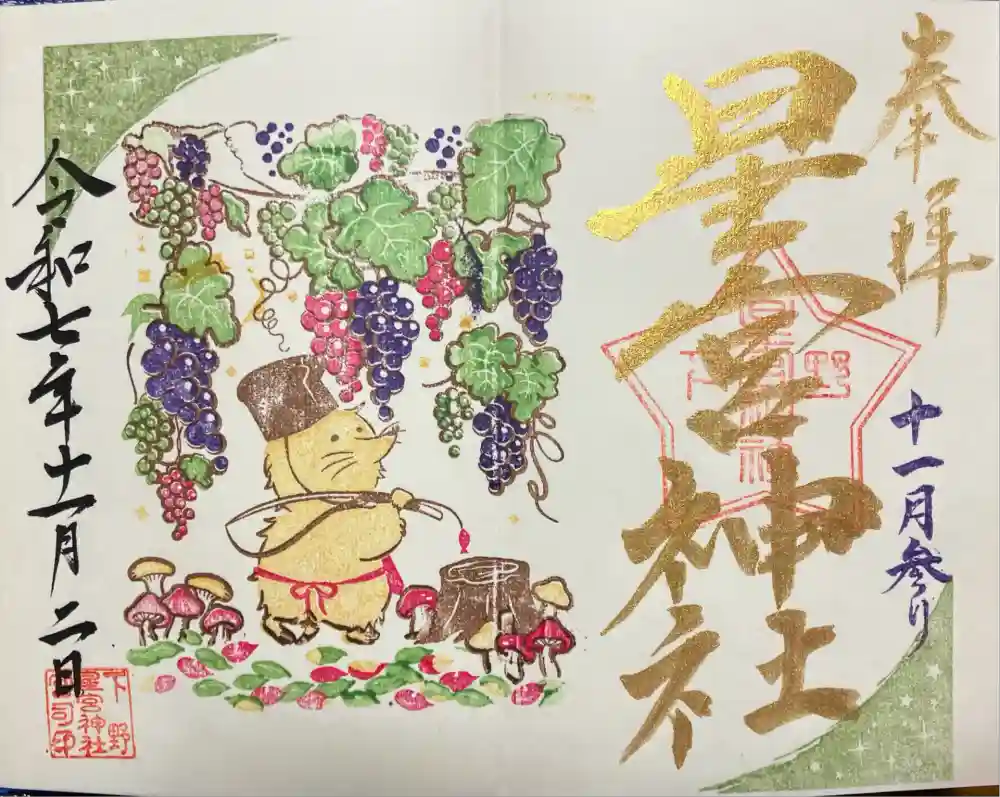 奉拝
十一月参り
星宮神社
下野
令和七年十一月二日
下野
星宮神社
宮司印